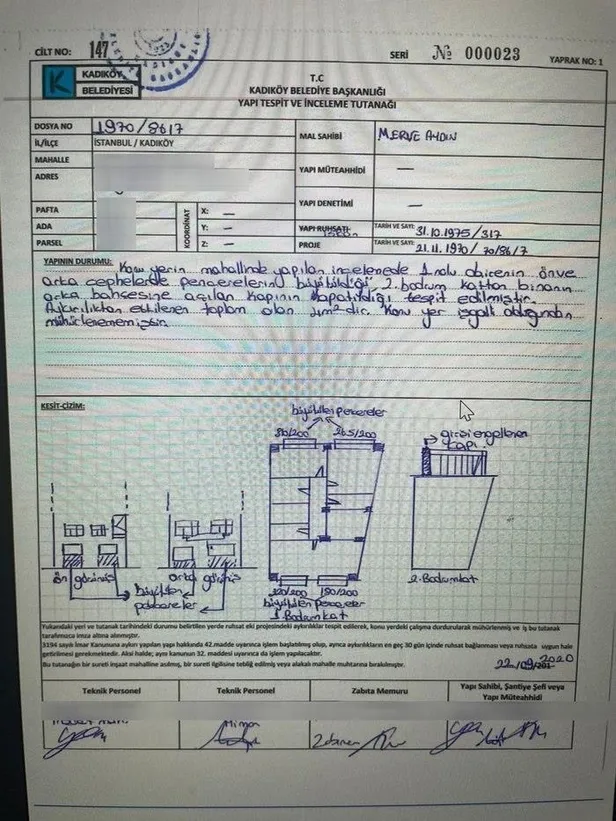 CİLT NO: 147
SERİ № 000023 YAPRAK NO: 1
KADIKÖY
BELEDİYESİ
T.C
KADIKÖY BELEDİYE BAŞKANLIĞI
YAPI TESPİT VE İNCELEME TUTANAĞI
DOSYA NO 1970/8617
MAL SAHİBİ MERVE AYDIN
İL/İLÇE İSTANBUL / KADIKÖY
MAHALLE
ADRES
YAPI MÜTEAHHİDİ —
YAPI DENETİMİ —
PAFTA
ADA
PARSEL
KOORDİNAT
X: —
Y: —
Z: —
YAPI RUHSATI TARİH VE SAYI: 31.10.1975/317
PROJE TARİH VE SAYI: 21.11.1970/ 70/86/7
YAPININ DURUMU: Konu yerin mahallinde yapılan incelemede 1 nolu dairenin ön ve
arka cephelerde pencerelerini büyütüldüğü, 2. bodrum kattan binanın
arka bahçesine açılan kapının kapatıldığı tespit edilmiştir.
Aykırılıktan etkilenen toplam alan m² dir. Konu yer işgalli olduğundan
mühürlenememiştir.
KESİT-ÇİZİM:
büyütülen pencereler
80/200 265/200
girişi engellenen
kapı
ön görünüş
arka görünüş
büyütülen
pencereler
120/200 190/200
büyütülen pencereler
1. Bodrum kat
2. Bodrum kat
Yukarıdaki yeri ve tutanak tarihindeki durumu belirtilen yerde ruhsat eki projesindeki aykırılıklar tespit edilerek, konu yerdeki çalışma durdurularak mühürlenmiş ve iş bu tutanak
tarafımızca imza altına alınmıştır.
3194 sayılı İmar Kanununa aykırı yapılan yapı hakkında 42.madde uyarınca işlem başlatılmış olup, ayrıca aykırılıkların en geç 30 gün içinde ruhsat bağlanması veya ruhsata uygun hale
getirilmesi gerekmektedir. Aksi halde; aynı kanunun 32. maddesi uyarınca da işlem yapılacaktır.
Bu tutanağın bir sureti inşaat mahalline asılmış, bir sureti ilgilisine tebliğ edilmiş veya alakalı mahalle muhtarına bırakılmıştır.
22/09/2020
Teknik Personel Teknik Personel Zabıta Memuru Yapı Sahibi, Şantiye Şefi veya
Yapı Müteahhidi
Mimar